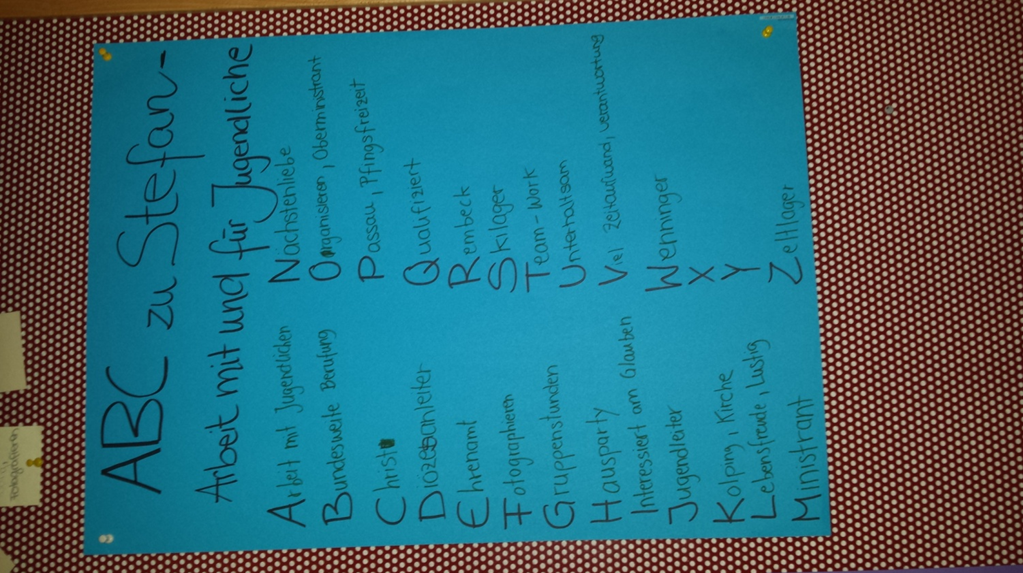 ABC zu Stefan-
Arbeit mit und für Jugendliche
Arbeit mit Jugendlichen
Bundesweite Berufung
Christ
Diözesanleiter
Ehrenamt
Fotographieren
Gruppenstunden
Hausparty
Interessiert am Glauben
Jugendleiter
Kolping, Kirche
Lebensfreude, lustig
Ministrant
Nächstenliebe
Organisieren, Oberministrant
Passau, Pfingsfreizeit
Qualifiziert
Rembeck
Skilager
Team-Work
Unterhaltsam
Viel Zeitaufwand, Verantwortung
Wenninger
X
Y
Zeltlager